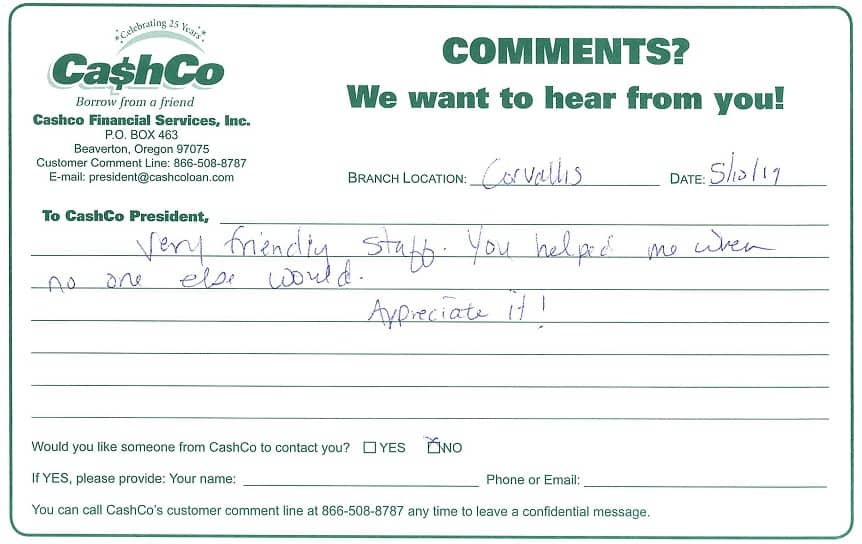 Celebrating 25 Years
Ca$hCo
Borrow from a friend
Cashco Financial Services, Inc.
P.O. BOX 463
Beaverton, Oregon 97075
Customer Comment Line: 866-508-8787
E-mail: president@cashcoloan.com
COMMENTS?
We want to hear from you!
BRANCH LOCATION: Corvallis DATE: 5/10/19
To CashCo President,
Very friendly staff. You helped me when
no one else would.
Appreciate it!
Would you like someone from CashCo to contact you? YES NO
If YES, please provide: Your name: Phone or Email:
You can call CashCo's customer comment line at 866-508-8787 any time to leave a confidential message.